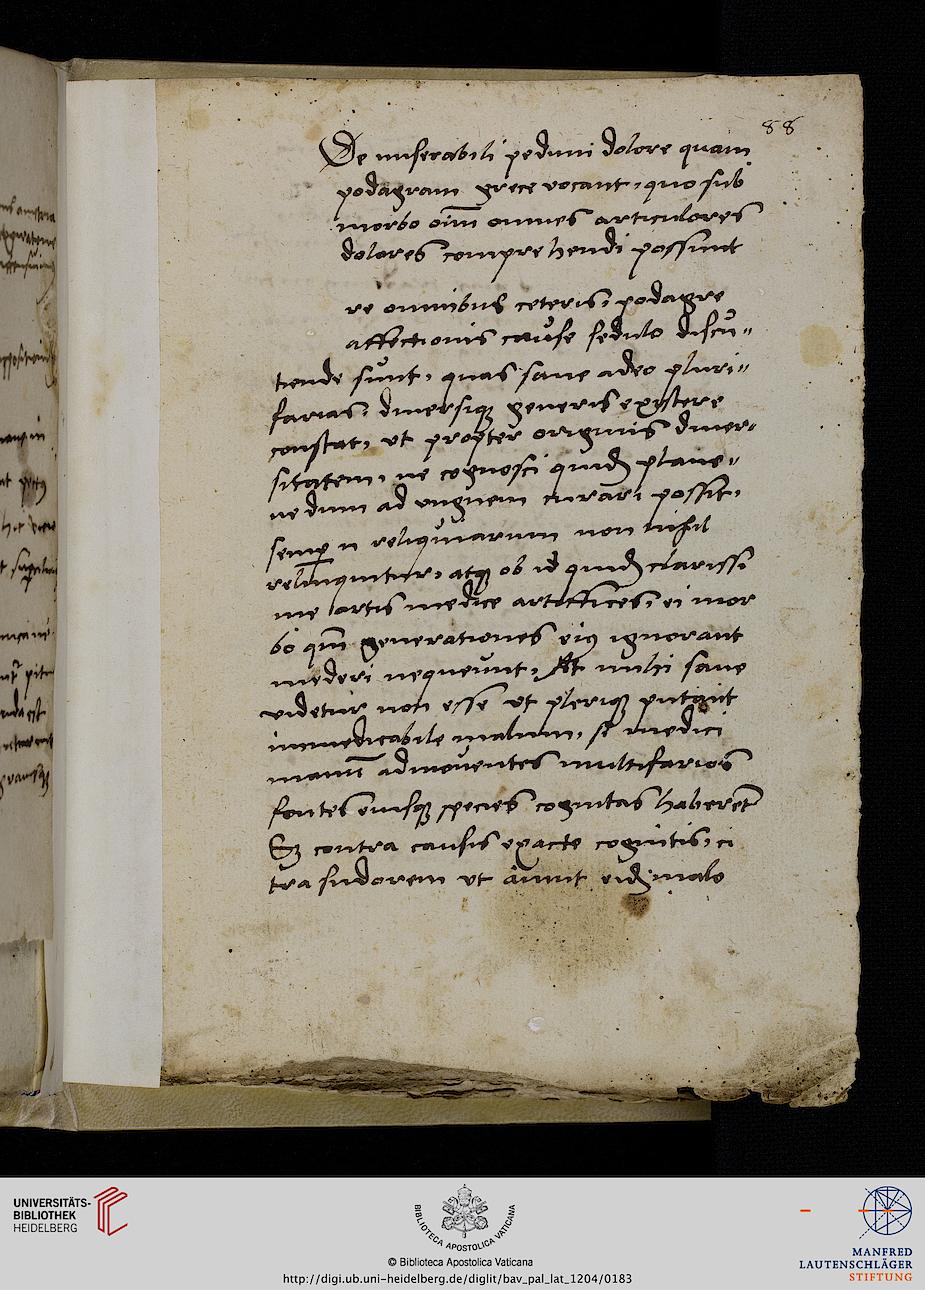 88
De miserabili pedum dolore quam
podagram grece vocant, quo sub
morbo oīm omnes articulores
dolores comprehendi possunt
re omnibus ceteris, podagre
affectionis cause sedulo discu-
tiende sunt, quas sane adeo pluri-
farias, diuersiqꝫ generis existere
constat, ut propter originis diuer-
sitatem, ne cognosci quidꝫ plane-
nedum ad unguem curari possit,
semꝑ n reliquiarum non nihil
relinquitur, atqꝫ ob id quidꝫ clarissi
me artis medice artiffices, ei mor
bo qm̄ generationes eiꝰ ignorant
mederi nequeunt, At mihi sane
videtur non esse ut pleriqꝫ putant
immedicabile malum, si medici
manū admouentes multifarios
fontes eiusqꝫ species cognitas haberēt
Sꝫ contra causis exacte cognitis, ci
tra sudorem ut aiunt eidꝫ malo
UNIVERSITÄTS-
BIBLIOTHEK
HEIDELBERG
BIBLIOTECA APOSTOLICA VATICANA
© Biblioteca Apostolica Vaticana
http://digi.ub.uni-heidelberg.de/diglit/bav_pal_lat_1204/0183
MANFRED
LAUTENSCHLÄGER
STIFTUNG